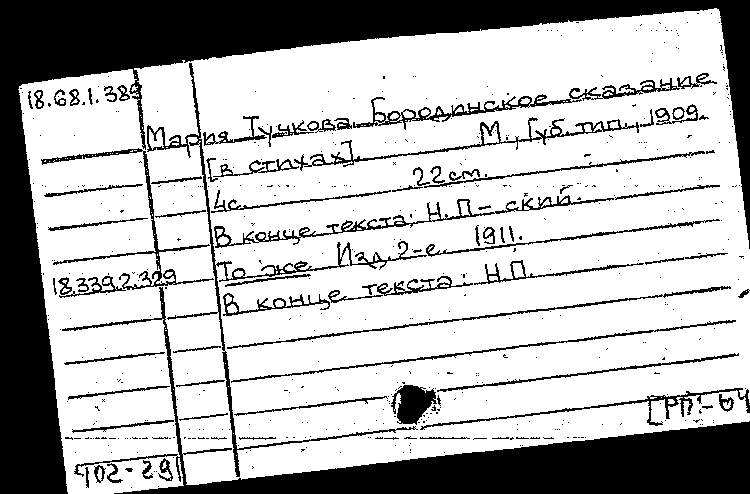 18.68.1.389
Мария Тучкова. Бородинское сказание
[в стихах]. М., Губ. тип., 1909.
4с. 22 см.
В конце текста: Н. П-ский.
18.339.2.329 То же Изд. 2-е. 1911.
В конце текста: Н.П.
402-291